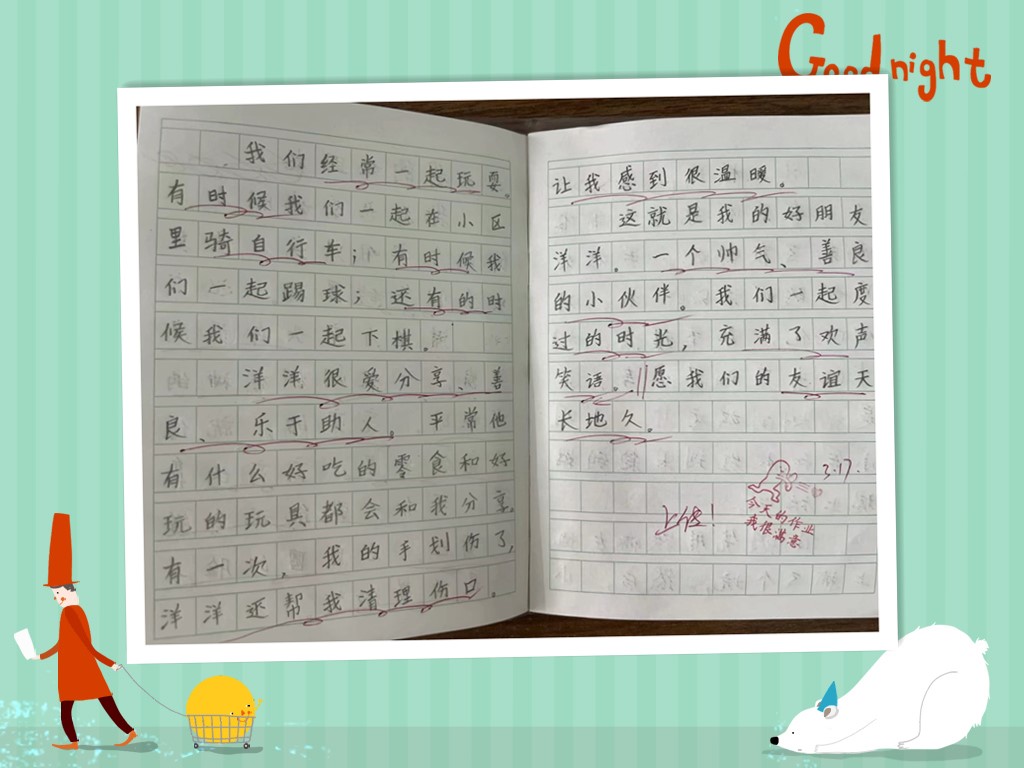 Good night
我们经常一起玩耍。
有时候我们一起在小区
里骑自行车；有时候我
们一起踢球；还有的时
候我们一起下棋。
洋洋很爱分享、善
良、乐于助人。平常他
有什么好吃的零食和好
玩的玩具都会和我分享。
有一次，我的手划伤了，
洋洋还帮我清理伤口。
让我感到很温暖。
这就是我的好朋友
洋洋。一个帅气、善良
的小伙伴。我们一起度
过的时光，充满了欢声
笑语。愿我们的友谊天
长地久。
3.17.
今天的作业
我很满意
上传！